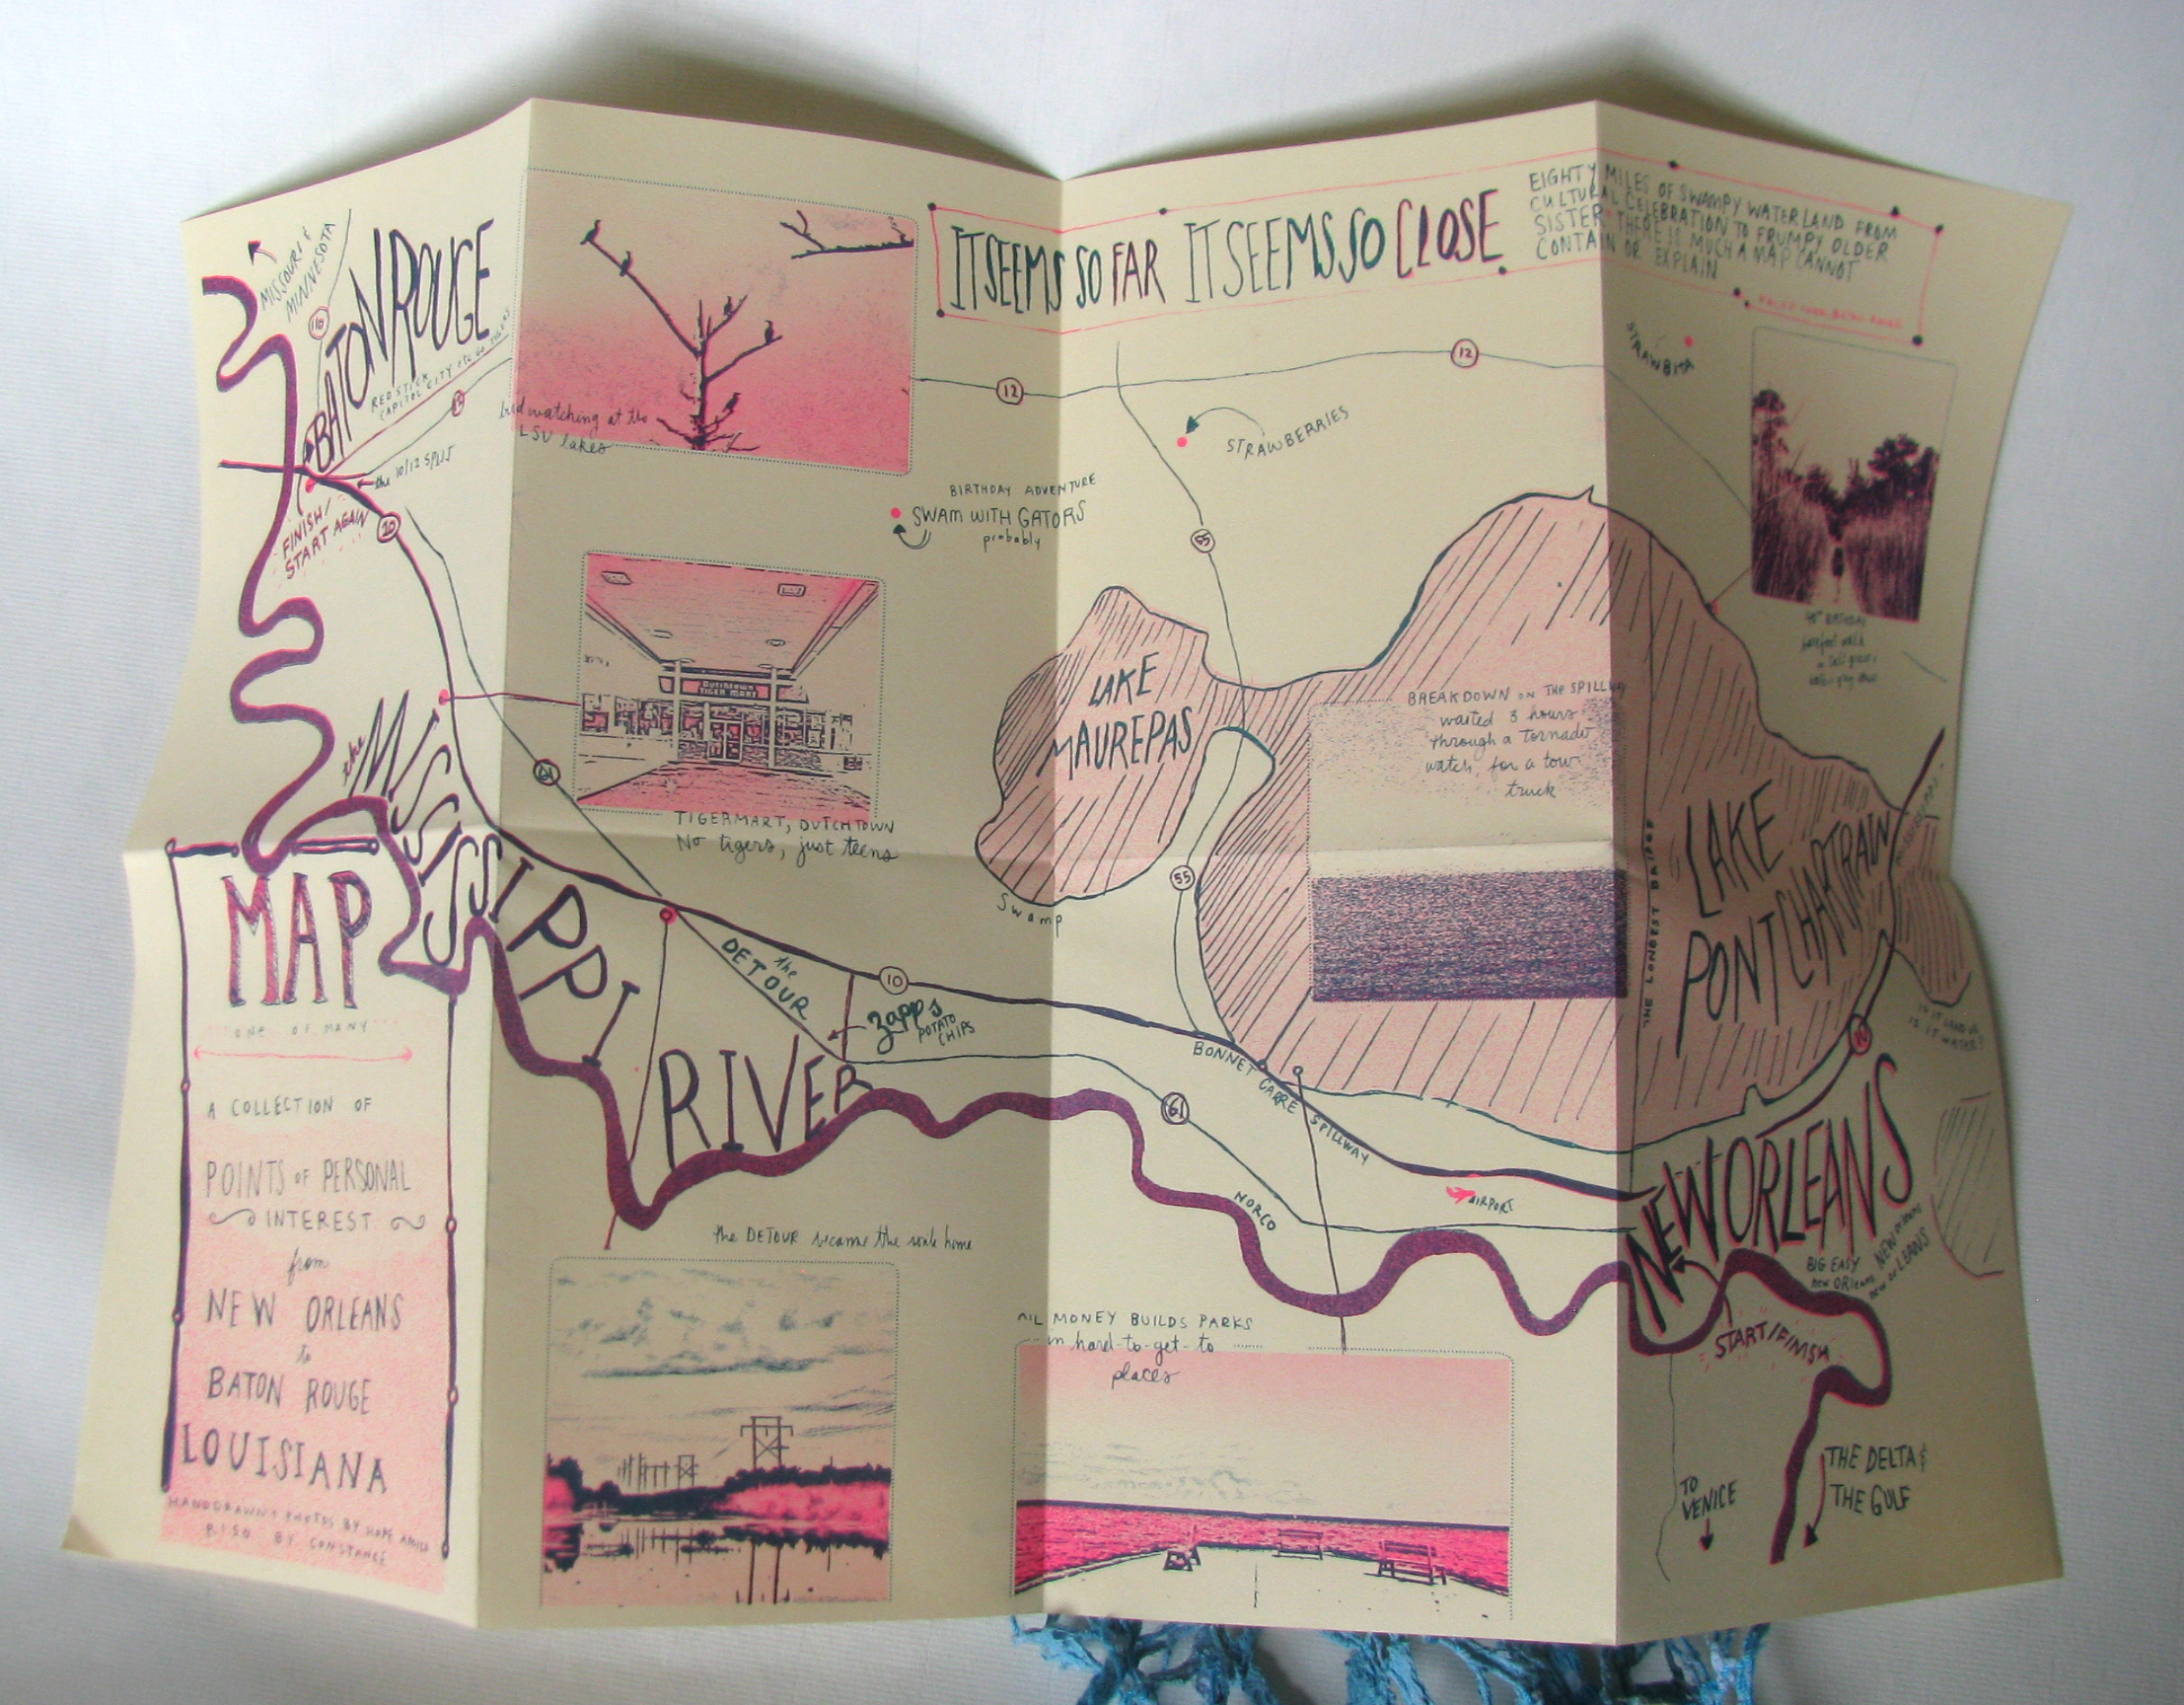 MISSOURI &
MINNESOTA
110
BATON ROUGE
RED STICK
CAPITOL CITY etc GO TIGERS
the 10/12 SPLIT
FINISH/
START AGAIN
10
bird watching at the
LSU lakes
IT SEEMS SO FAR IT SEEMS SO CLOSE
EIGHTY MILES OF SWAMPY WATERLAND FROM
CULTURAL CELEBRATION TO FRUMPY OLDER
SISTER THERE IS MUCH A MAP CANNOT
CONTAIN OR EXPLAIN
12
12
STRAWBERRIES
55
BIRTHDAY ADVENTURE
SWAM WITH GATORS
probably
BIRTHDAY
barefoot walk
Dutchtown
TIGER MART
TIGERMART, DUTCHTOWN
No tigers, just teens
61
LAKE
MAUREPAS
Swamp
55
BREAKDOWN ON THE SPILLWAY
waited 3 hours
through a tornado
watch, for a tow
truck
THE LONGEST BRIDGE
LAKE
PONTCHARTRAIN
IS IT LAND or
IS IT WATER?
the
MISSISSIPPI
RIVER
the
DETOUR
10
Zapp's
POTATO
CHIPS
BONNET CARRE SPILLWAY
61
NORCO
AIRPORT
10
NEW ORLEANS
BIG EASY
START/FINISH
TO
VENICE
THE DELTA &
THE GULF
the DETOUR became the route home
OIL MONEY BUILDS PARKS
in hard-to-get-to
places
MAP
ONE OF MANY
A COLLECTION OF
POINTS OF PERSONAL
INTEREST
from
NEW ORLEANS
to
BATON ROUGE
LOUISIANA
HANDDRAWN & PHOTOS BY HOPE
RISO BY CONSTANCE